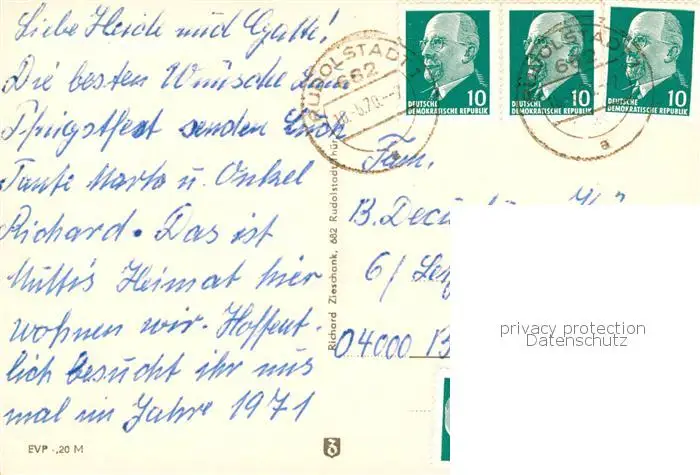 Liebe Heide und Gatte!
Die besten Wünsche zum
Pfingstfest senden Euch
Tante Marta u. Onkel
Richard. Das ist
Mutti's Heimat hier
wohnen wir. Hoffent-
lich besucht ihr uns
mal im Jahre 1971
EVP -,20 M
Richard Zieschank, 682 Rudolstadt/Thür
RUDOLSTADT 1
682
a
10
DEUTSCHE
DEMOKRATISCHE REPUBLIK
10
DEUTSCHE
DEMOKRATISCHE REPUBLIK
RUDOLSTADT
682
a
10
DEUTSCHE
DEMOKRATISCHE REPUBLIK
Fam.
B.
6/
04000 B
privacy protection
Datenschutz